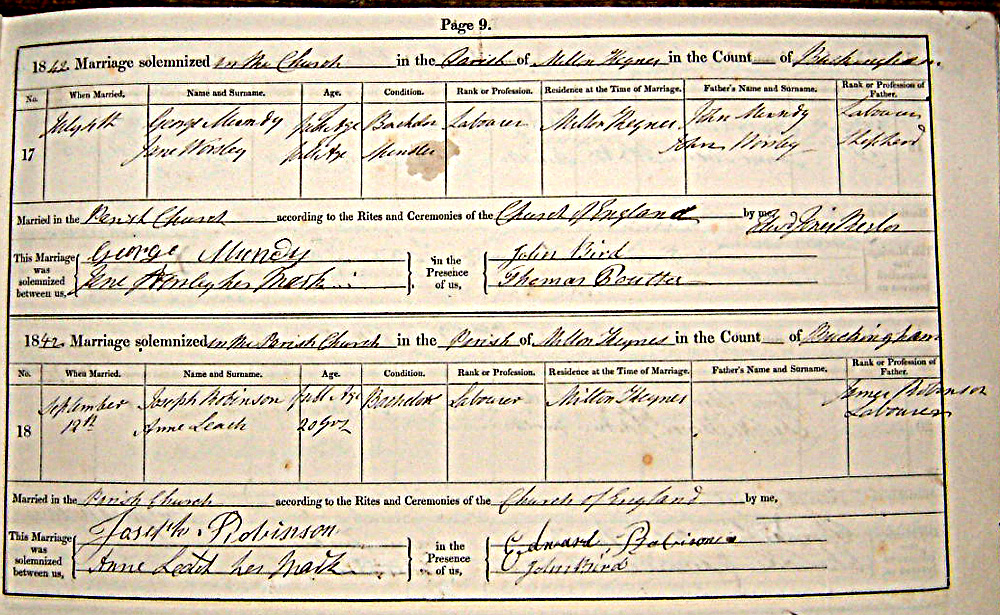 Page 9.
1842. Marriage solemnized in the Church in the Parish of Milton Keynes in the Count of Buckingham.
No. When Married. Name and Surname. Age. Condition. Rank or Profession. Residence at the Time of Marriage. Father's Name and Surname. Rank or Profession of Father.
July 4th George Mundy full Age Bachelor Labourer Milton Keynes John Mundy Labourer
17 Jane Worsley full Age John Worsley Shepherd
Married in the Parish Church according to the Rites and Ceremonies of the Church of England by me,
This Marriage was solemnized between us, George Mundy in the Presence of us, John Bird
Jane Worsley her Mark Thomas Coulter
1842. Marriage solemnized in the Parish Church in the Parish of Milton Keynes in the Count of Buckingham
No. When Married. Name and Surname. Age. Condition. Rank or Profession. Residence at the Time of Marriage. Father's Name and Surname. Rank or Profession of Father.
September Joseph Robinson full Age Bachelor Labourer Milton Keynes James Robinson
18 12th Anne Leach 20 yrs Labourer
Married in the Parish Church according to the Rites and Ceremonies of the Church of England by me,
This Marriage was solemnized between us, Joseph Robinson in the Presence of us, Edward Robinson
Anne Leach her Mark John Bird